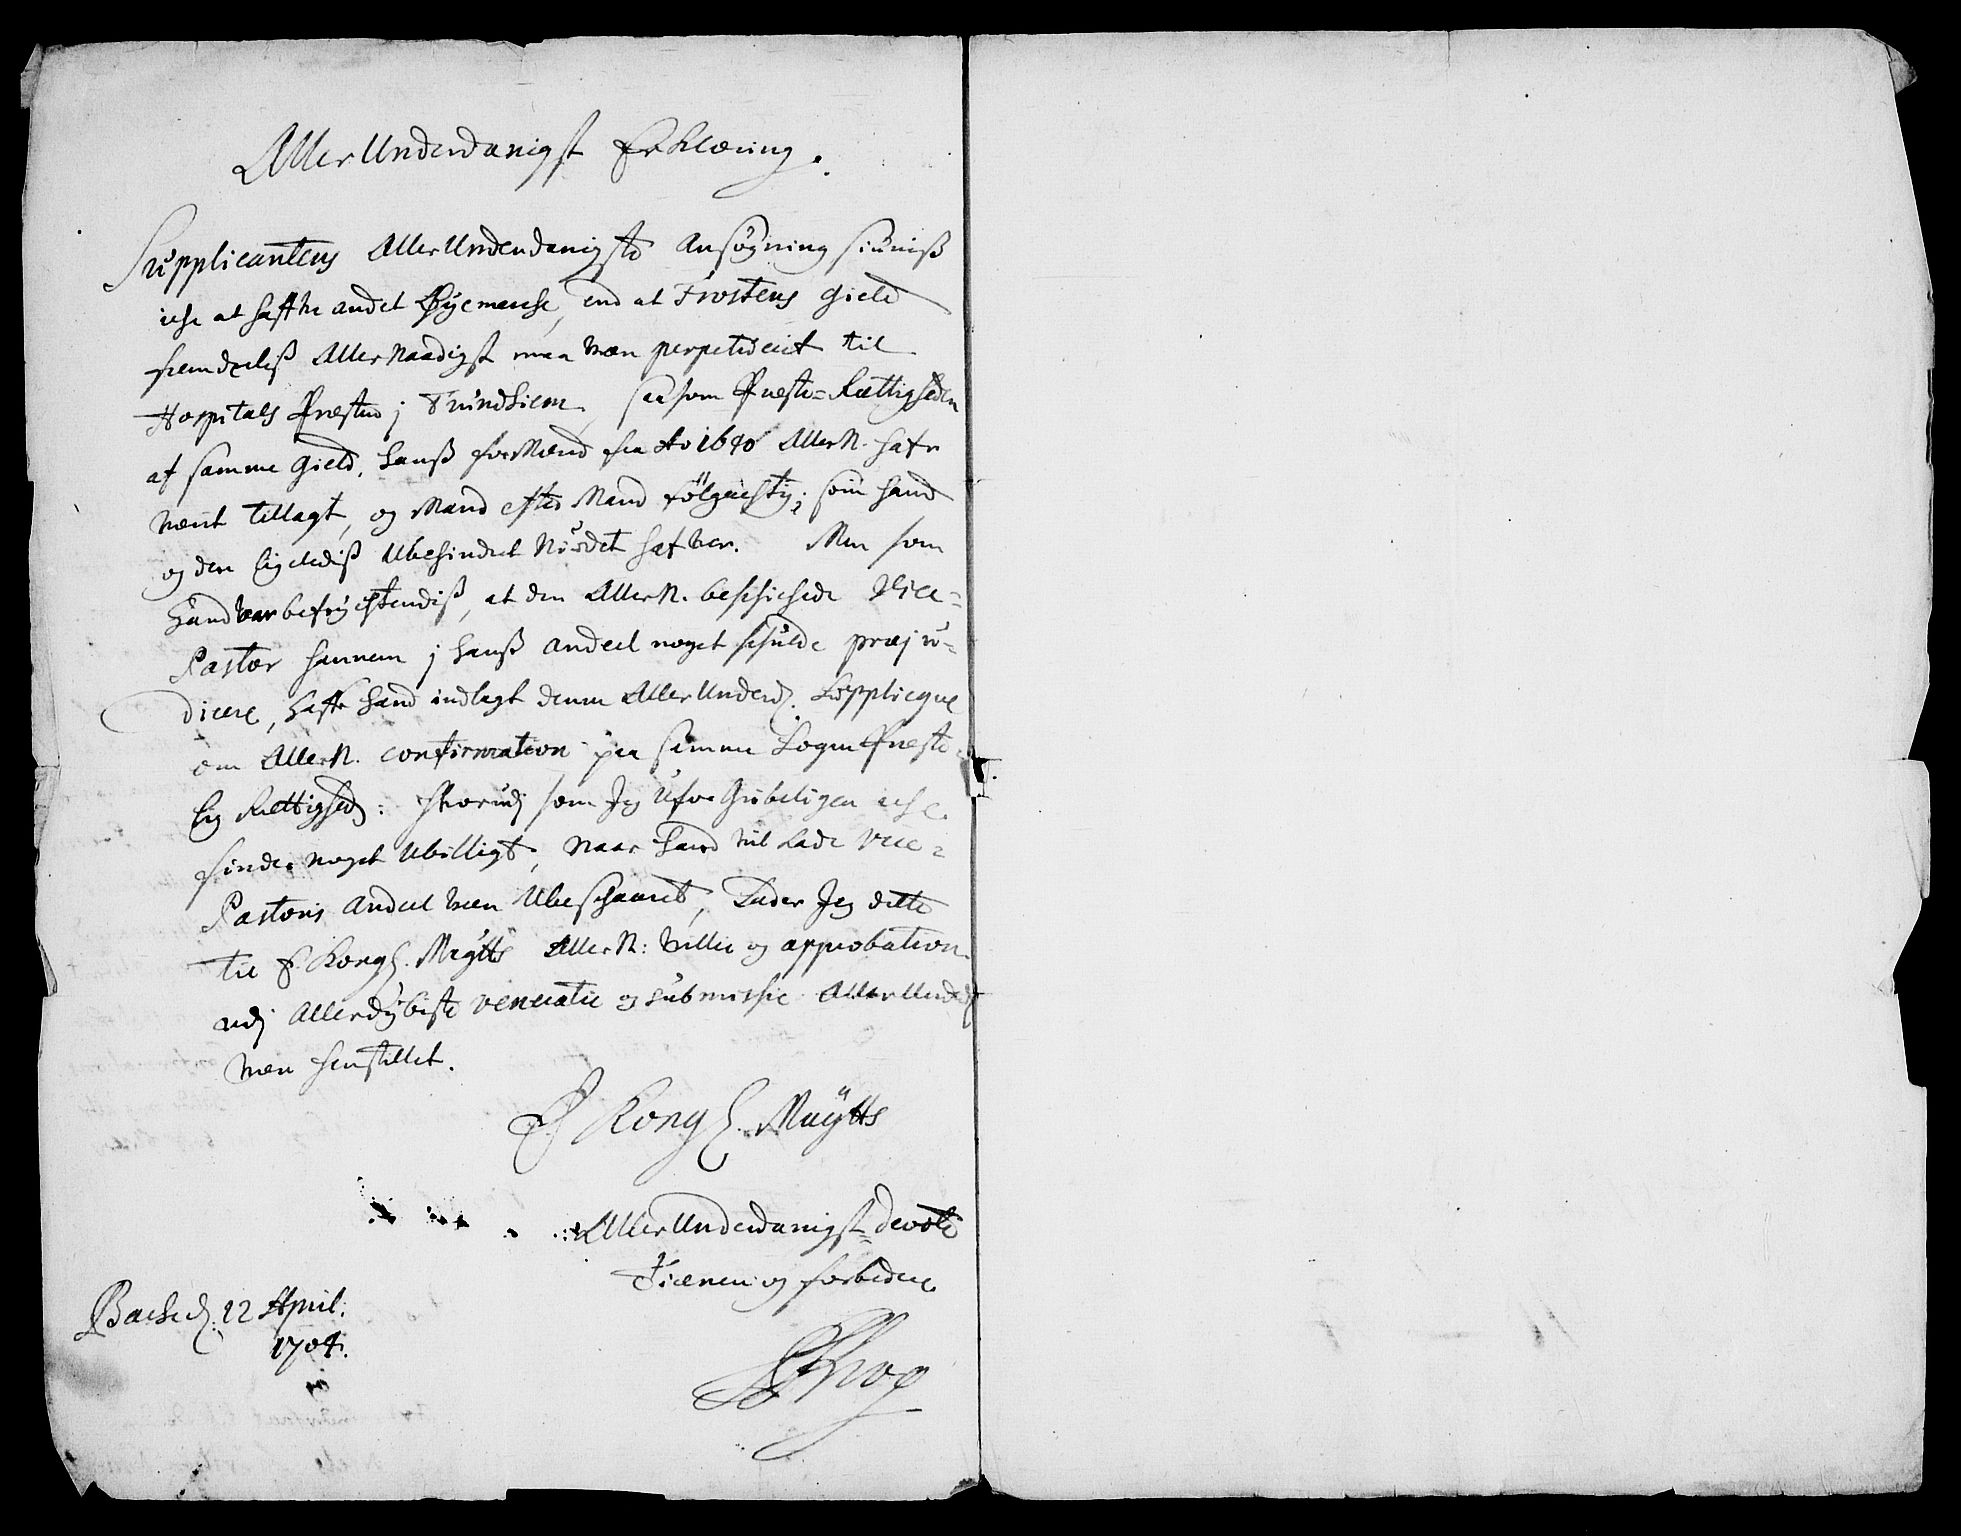 AllerUnderdanigst Erklæring.
Supplicantens AllerUnderdanigste Ansøgning siuniß
iche at haffve andet Øyemerche, end at Frostens Gield
fremdeeliß AllerNaadigst maa være perpetueret til
Hospitals Præsten j Trundhiem, saasom Præste-Rættigheden
af samme Gield, hanß forMænd fra Ao 1690 AllerN. hafr
værit tillagt, og Mand efter Mand følgachtig; som hand
og den ligelediß Ubehindret Nÿdet hafver. Men som
Hand var befrÿchtendiß, at den AllerN. beschichede Vice-
Pastor hannem j hanß andeel noget schulde præju-
dicere, haffr hand indlagt denne AllerUnderd. Supplicque
om AllerN. confirmation paa samme Sogne Præste-
lig Rettighed: Hvorudj som Jeg Uforgribeligen iche
finder noget Ubilligt, Naar Hand vil lade Vice-
Pastoris Andeel være Ubeschaaret, Lader Jeg dette
til E. Kongl. Maÿtts AllerN: Villie og approbation
udj Allerdÿbiste veneratie og submissie AllerUnderdst
være henstillet.
E Kongl. Maÿtts
AllerUnderdanigst-devote
Tienere og forbedere
Bached: 12 April:
1704.
PKrog